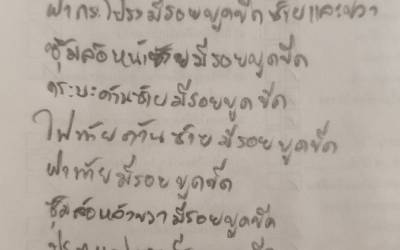 ฝากระโปรงมีรอยขูดขีดซ้ายและขวา
ซุ้มล้อหน้าซ้ายมีรอยขูดขีด
กระบะด้านซ้ายมีรอยขูดขีด
ไฟท้ายด้านซ้ายมีรอยขูดขีด
ฝาท้ายมีรอยขูดขีด
ซุ้มล้อหลังขวามีรอยขูดขีด